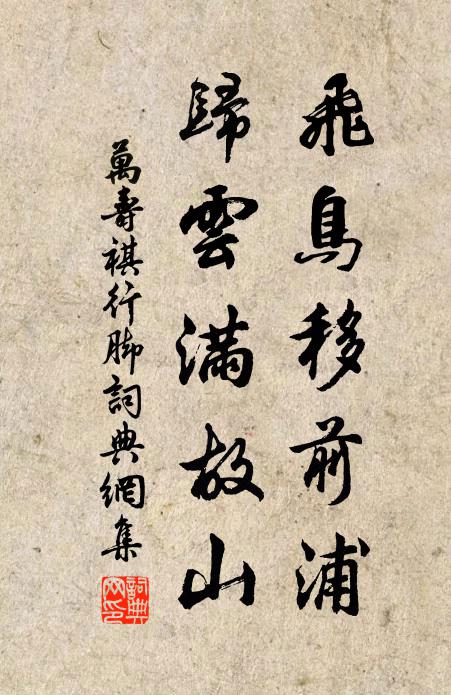 飛鳥移前浦
歸雲滿故山
萬壽祺行脚詞典網集
詞典网印